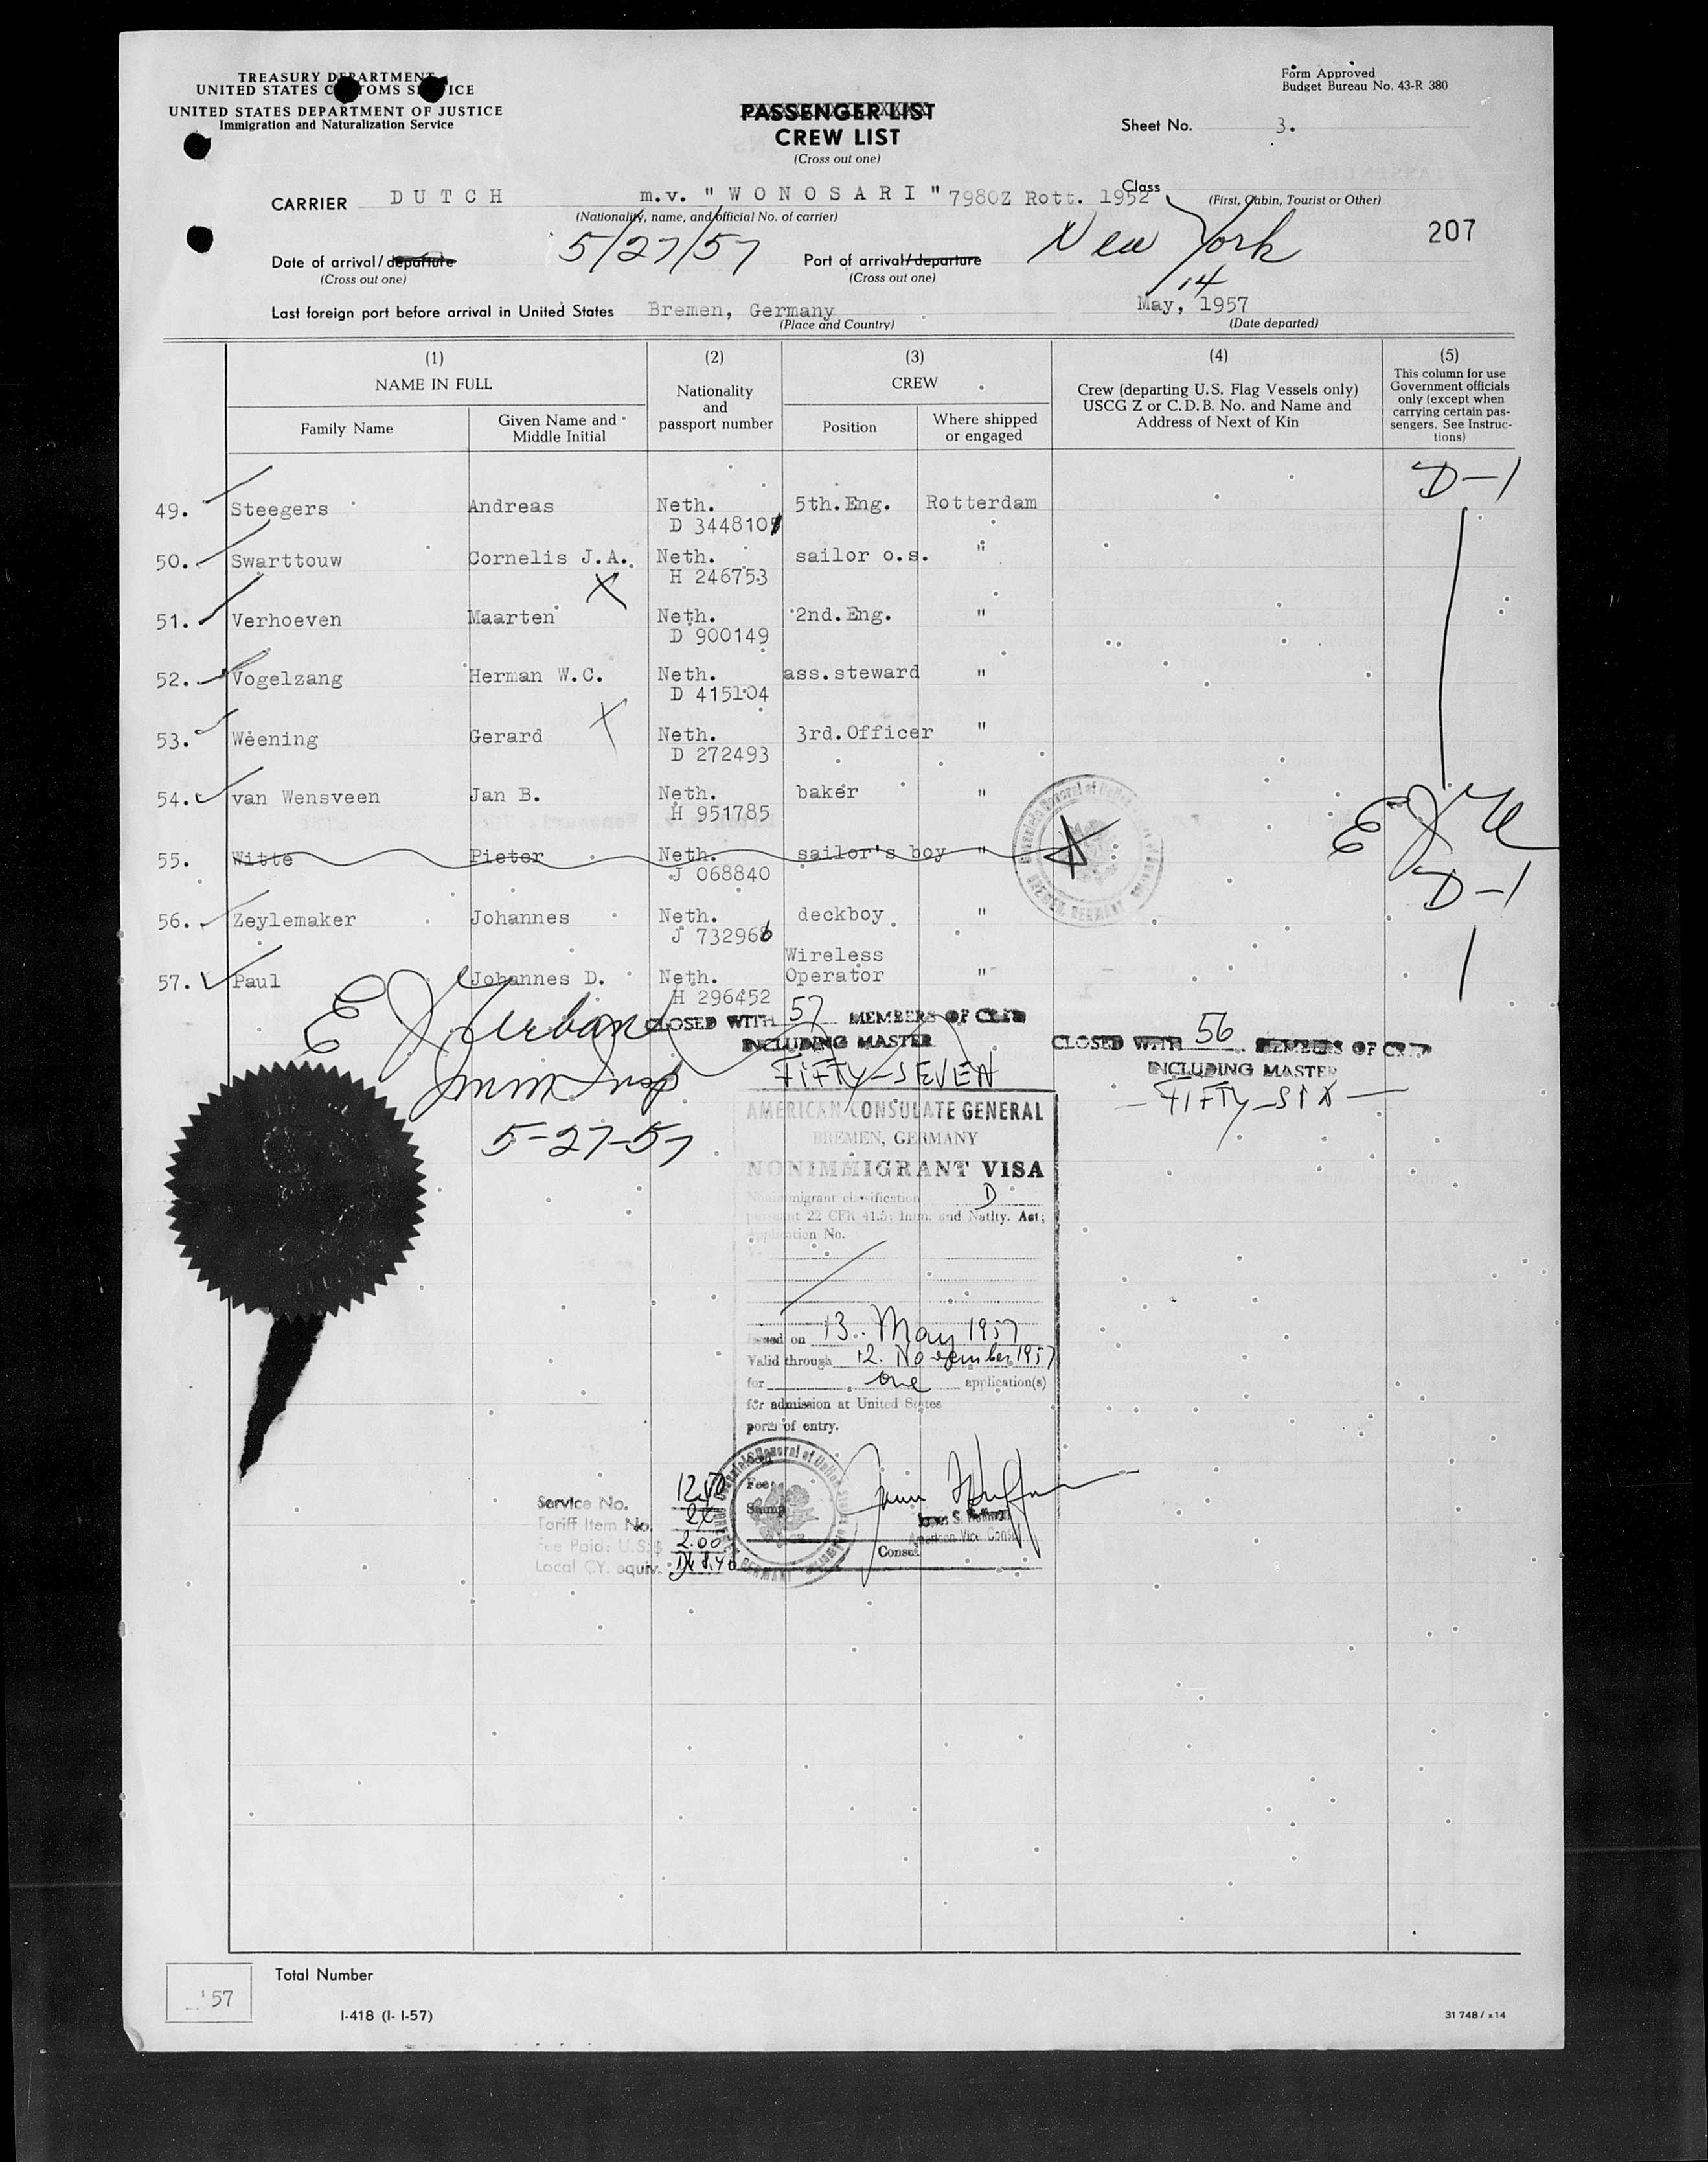 TREASURY DEPARTMENT
UNITED STATES CUSTOMS SERVICE
UNITED STATES DEPARTMENT OF JUSTICE
Immigration and Naturalization Service
Form Approved
Budget Bureau No. 43-R 380
PASSENGER LIST
CREW LIST
(Cross out one)
Sheet No. 3.
CARRIER DUTCH m.v. "WONOSARI" 7980Z Rott. 1952
(Nationality, name, and official No. of carrier)
Class
(First, Cabin, Tourist or Other)
207
Date of arrival/departure 5/27/57 Port of arrival/departure New York
(Cross out one) (Cross out one)
14
Last foreign port before arrival in United States Bremen, Germany May, 1957
(Place and Country) (Date departed)
(1) (2) (3) (4) (5)
NAME IN FULL
Family Name
Given Name and Middle Initial
Nationality and passport number
CREW
Position
Where shipped or engaged
Crew (departing U.S. Flag Vessels only)
USCG Z or C.D.B. No. and Name and
Address of Next of Kin
This column for use
Government officials
only (except when
carrying certain pas-
sengers. See Instruc-
tions)
D-1
49. Steegers Andreas Neth. 5th.Eng. Rotterdam
D 344810
50. Swarttouw Cornelis J.A. Neth. sailor o.s. "
H 246753
X
51. Verhoeven Maarten Neth. 2nd.Eng. "
D 900149
52. Vogelzang Herman W.C. Neth. ass.steward "
D 415104
X
53. Weening Gerard Neth. 3rd.Officer "
D 272493
54. van Wensveen Jan B. Neth. baker "
H 951785
55. Witte Pieter Neth. sailor's boy "
J 068840
D-1
56. Zeylemaker Johannes Neth. deckboy "
J 732966
57. Paul Johannes D. Neth. Wireless Operator "
H 296452
E J Urban
Imm Insp
5-27-57
CLOSED WITH 57 MEMBERS OF CREW
INCLUDING MASTER
FIFTY-SEVEN
CLOSED WITH 56 MEMBERS OF CREW
INCLUDING MASTER
— FIFTY-SIX —
AMERICAN CONSULATE GENERAL
BREMEN, GERMANY
NONIMMIGRANT VISA
Nonimmigrant classification D
pursuant 22 CFR 41.5; Imm. and Natlty. Act;
Application No.
V-
Issued on 13. May 1957
Valid through 12. November 1957
for one application(s)
for admission at United States
ports of entry.
Seal
Fee
Stamp
James S. Hoffman
American Vice Consul
Consul
Service No.
Tariff Item No.
Fee Paid: U.S.$ 2.00
Local CY. equiv. DM 8.40
Total Number
'57
I-418 (1-1-57)
31 748 / x14